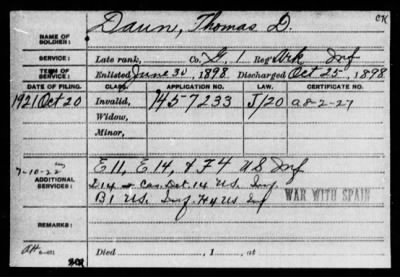 Daun, Thomas D.
CK
NAME OF SOLDIER:
SERVICE: Late rank, Co. G, 1 Reg't Ark Inf
TERM OF SERVICE: Enlisted June 30, 1898 Discharged Oct 25, 1898
DATE OF FILING. CLASS. APPLICATION NO. LAW. CERTIFICATE NO.
1921 Oct 20 Invalid, 1457233 J/20 a8-2-27
Widow,
Minor,
7-10-22 E 11, E 14, & F 4 US Inf
ADDITIONAL SERVICES: E 14 & Cas. Det. 14 U.S. Inf
B 1 U.S. Inf. H 4 US Inf WAR WITH SPAIN
REMARKS:
Died , 1 , at